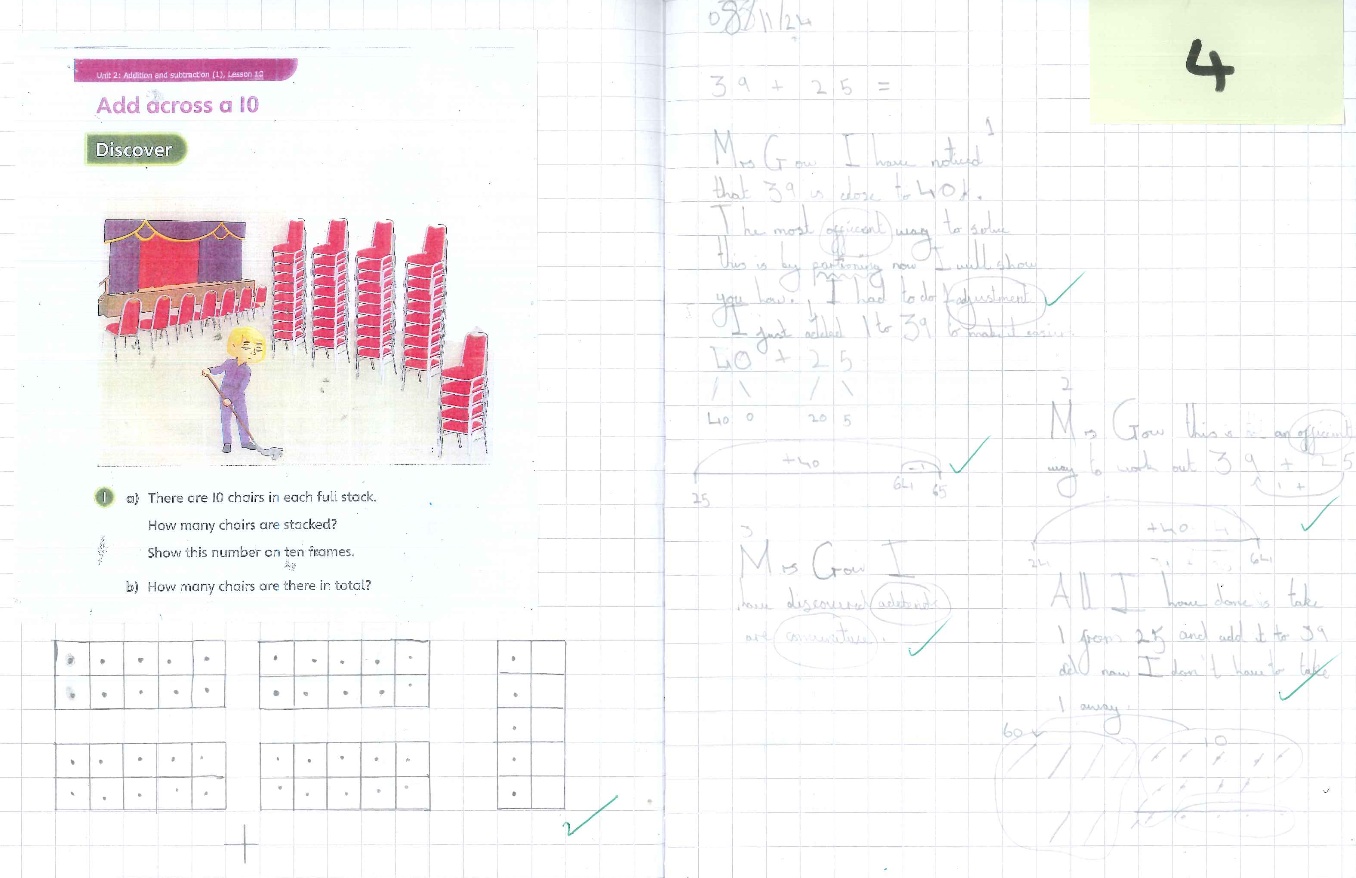 Unit 2: Addition and subtraction (1), Lesson 10
Add across a 10
Discover
1 a) There are 10 chairs in each full stack.
How many chairs are stacked?
Show this number on ten frames.
b) How many chairs are there in total?
2
11/24
4
39 + 25 =
1
Mrs Gow I have noticed
that 39 is close to 40
The most efficent way to solve
this is by partioning now I will show
you how. I had to do adjustment
I just added 1 to 39 to
40 + 25
40 0 20 5
+40
-1
25 64 65
2
Mrs Gow this is an efficent
way to work out 39 + 25
1 +
+40
24 64
All I have done is take
1 from 25 and add it to 39
now I don't have to take
1 away.
60
10
3
Mrs Gow I
have discovered
are